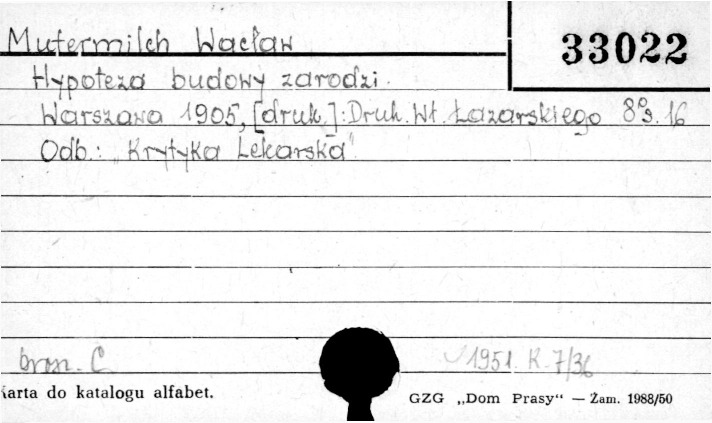 Mutermilch Wacław
33022
Hypoteza budowy zarodzi.
Warszawa 1905, [druk.]: Druk. Wł. Łazarskiego 8° s. 16
Odb.: „Krytyka Lekarska"
bron. C
1951. K. 7/36
Karta do katalogu alfabet.
GZG „Dom Prasy“ — Żam. 1988/50